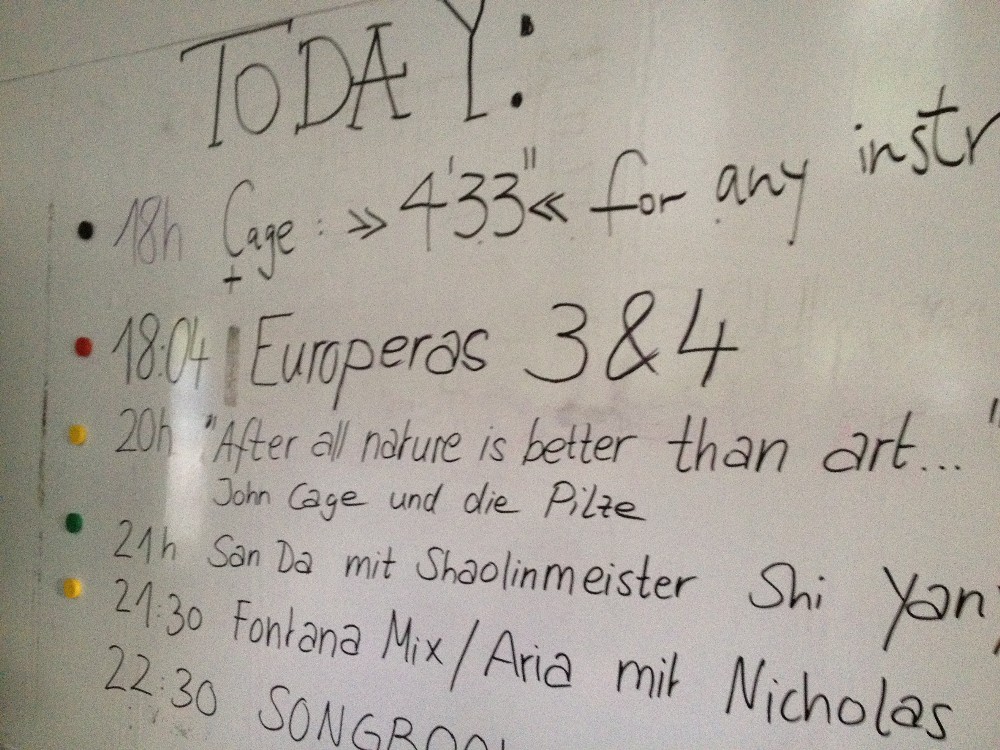 TODAY:
18h Cage: »4'33"« for any instr
+
18:04 Europeras 3&4
20h "After all nature is better than art..."
John Cage und die Pilze
21h San Da mit Shaolinmeister Shi Yan
21:30 Fontana Mix/Aria mit Nicholas
22:30 SONGBOO